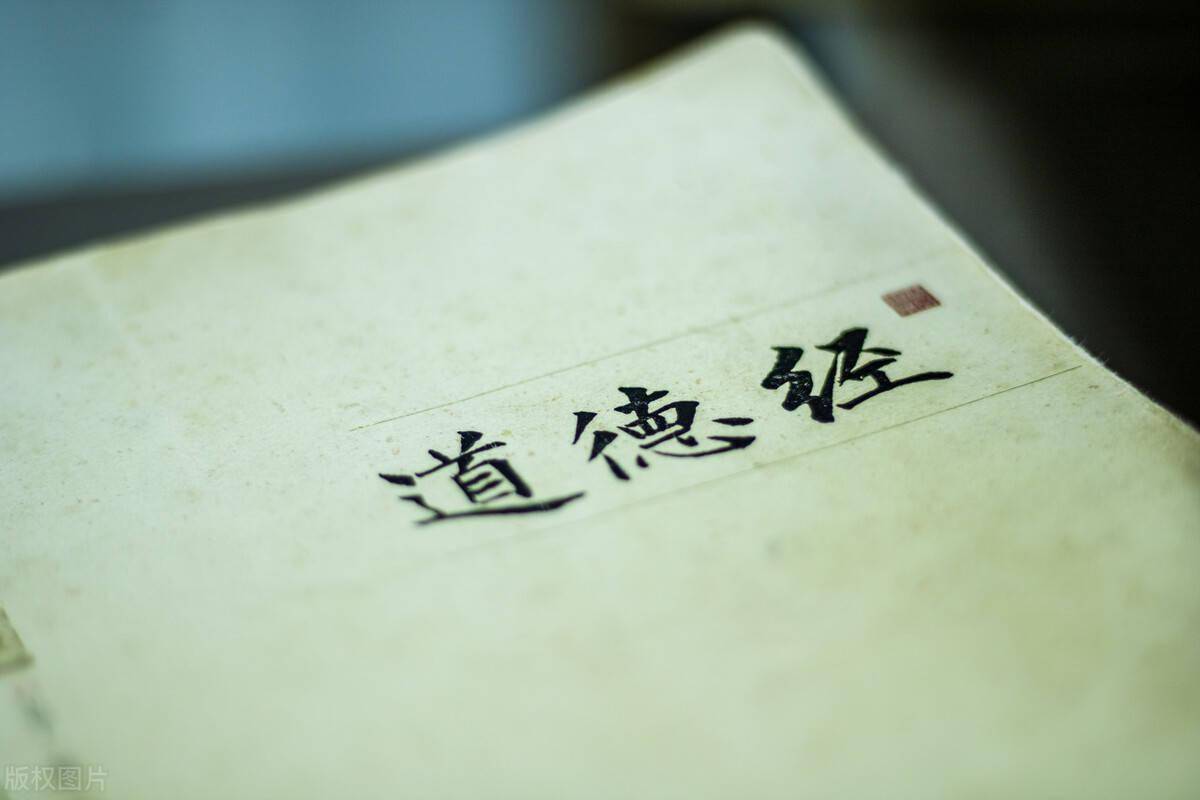 道德经
版权图片